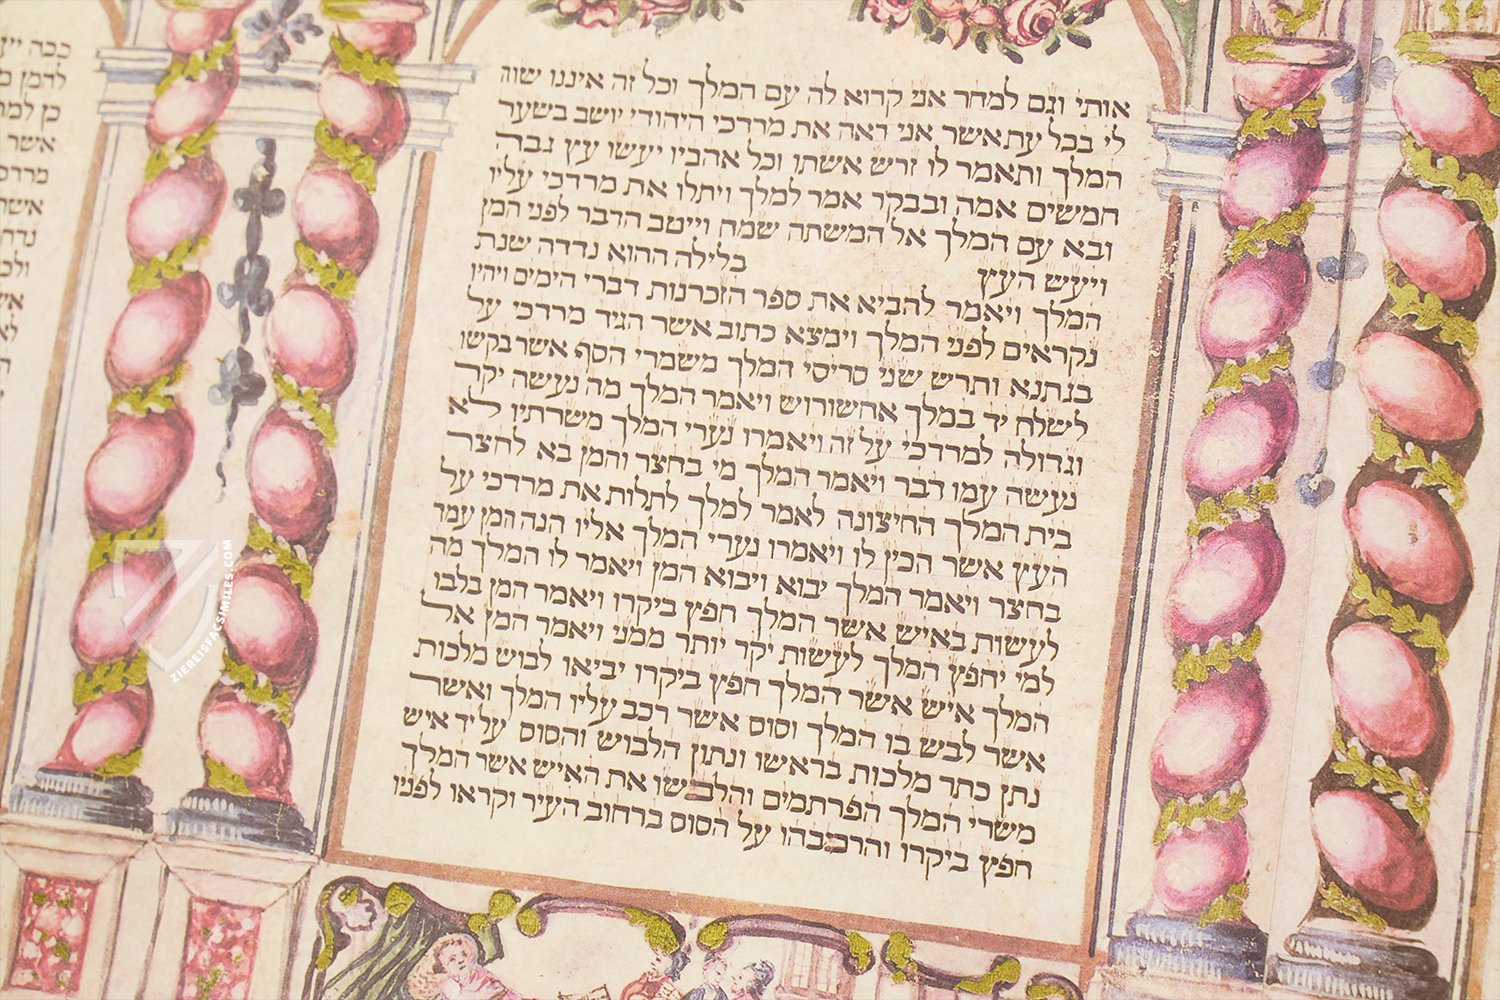 אותי וגם למחר אני קרוא לה עם המלך וכל זה איננו שוה
לי בכל עת אשר אני ראה את מרדכי היהודי יושב בשער
המלך ותאמר לו זרש אשתו וכל אהביו יעשו עץ גבה
חמשים אמה ובבקר אמר למלך ויתלו את מרדכי עליו
ובא עם המלך אל המשתה שמח וייטב הדבר לפני המן
ויעש העץ בלילה ההוא נדדה שנת
המלך ויאמר להביא את ספר הזכרנות דברי הימים ויהיו
נקראים לפני המלך וימצא כתוב אשר הגיד מרדכי על
בגתנא ותרש שני סריסי המלך משמרי הסף אשר בקשו
לשלח יד במלך אחשורוש ויאמר המלך מה נעשה יקר
וגדולה למרדכי על זה ויאמרו נערי המלך משרתיו לא
נעשה עמו דבר ויאמר המלך מי בחצר והמן בא לחצר
בית המלך החיצונה לאמר למלך לתלות את מרדכי על
העץ אשר הכין לו ויאמרו נערי המלך אליו הנה המן עמד
בחצר ויאמר המלך יבוא ויבוא המן ויאמר לו המלך מה
לעשות באיש אשר המלך חפץ ביקרו ויאמר המן בלבו
למי יחפץ המלך לעשות יקר יותר ממני ויאמר המן אל
המלך איש אשר המלך חפץ ביקרו יביאו לבוש מלכות
אשר לבש בו המלך וסוס אשר רכב עליו המלך ואשר
נתן כתר מלכות בראשו ונתון הלבוש והסוס על יד איש
משרי המלך הפרתמים והלבשו את האיש אשר המלך
חפץ ביקרו והרכבהו על הסוס ברחוב העיר וקראו לפניו
ככה
להמן
כן
אשר
ZIEREISFACSIMILES.COM